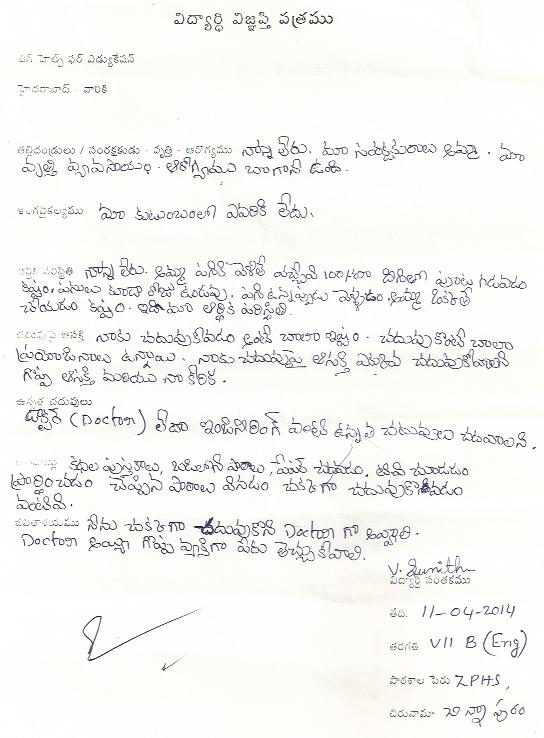 విద్యార్థి విజ్ఞప్తి పత్రము
బిగ్ హెల్ప్ ఫర్ ఎడ్యుకేషన్
హైదరాబాద్ - వారికి
తల్లిదండ్రులు / సంరక్షకుడు - వృత్తి - ఆరోగ్యము నాన్న లేరు. మా సంరక్షకురాలు అమ్మ. మా
వృత్తి వ్యవసాయం. ఆరోగ్యము బాగానే ఉంది.
అంగవైకల్యము మా కుటుంబంలో ఎవరికి లేదు.
ఆర్థిక పరిస్థితి నాన్న లేరు. అమ్మ పనికి వెళితే వచ్చేవి 100రూ౹౹ దీనిలో పూట గడవడం
కష్టం. పనులు కూడా రోజు ఉండవు. పని ఉన్నప్పుడు వెళ్ళడం. అమ్మ ఒక్కతే
చేయడం కష్టం. ఇది మా ఆర్థిక పరిస్థితి.
చదువుపై ఆసక్తి నాకు చదువుకోవడం అంటే చాలా ఇష్టం. చదువుకొంటే చాలా
ప్రయోజనాలు ఉన్నాయి. నాకు చదువుపై ఆసక్తి ఎక్కువ చదువుకోవాలని
గొప్ప ఆసక్తి మరియు నా కోరిక.
ఉన్నత చదువులు
డాక్టర్ (Doctor) లేదా ఇంజినిరింగ్ వంటి ఉన్నత చదువులు చదవాలని.
కథల పుస్తకాలు, బడిలోని పాఠాలు, పేపర్ చదవడం, టీవి చూడడం
ప్రార్థించడం చెప్పిన పాఠాలు వినడం చక్కగా చదువుకొనడం
వంటివి.
జీవితాశయము నేను చక్కగా చదువుకొని Doctor గా అవ్వాలి.
Doctor అయ్యి గొప్ప వ్యక్తిగా పేరు తెచ్చుకోవాలి.
V. Sunitha
విద్యార్థి సంతకము
తేది: 11-04-2014
తరగతి VII B (Eng)
పాఠశాల పేరు ZPHS,
చిరునామా చిన్నాపురం